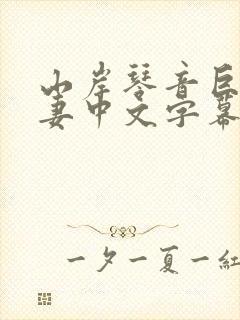 山岸琴音巨
妻中文字幕
一夕一夏一紅